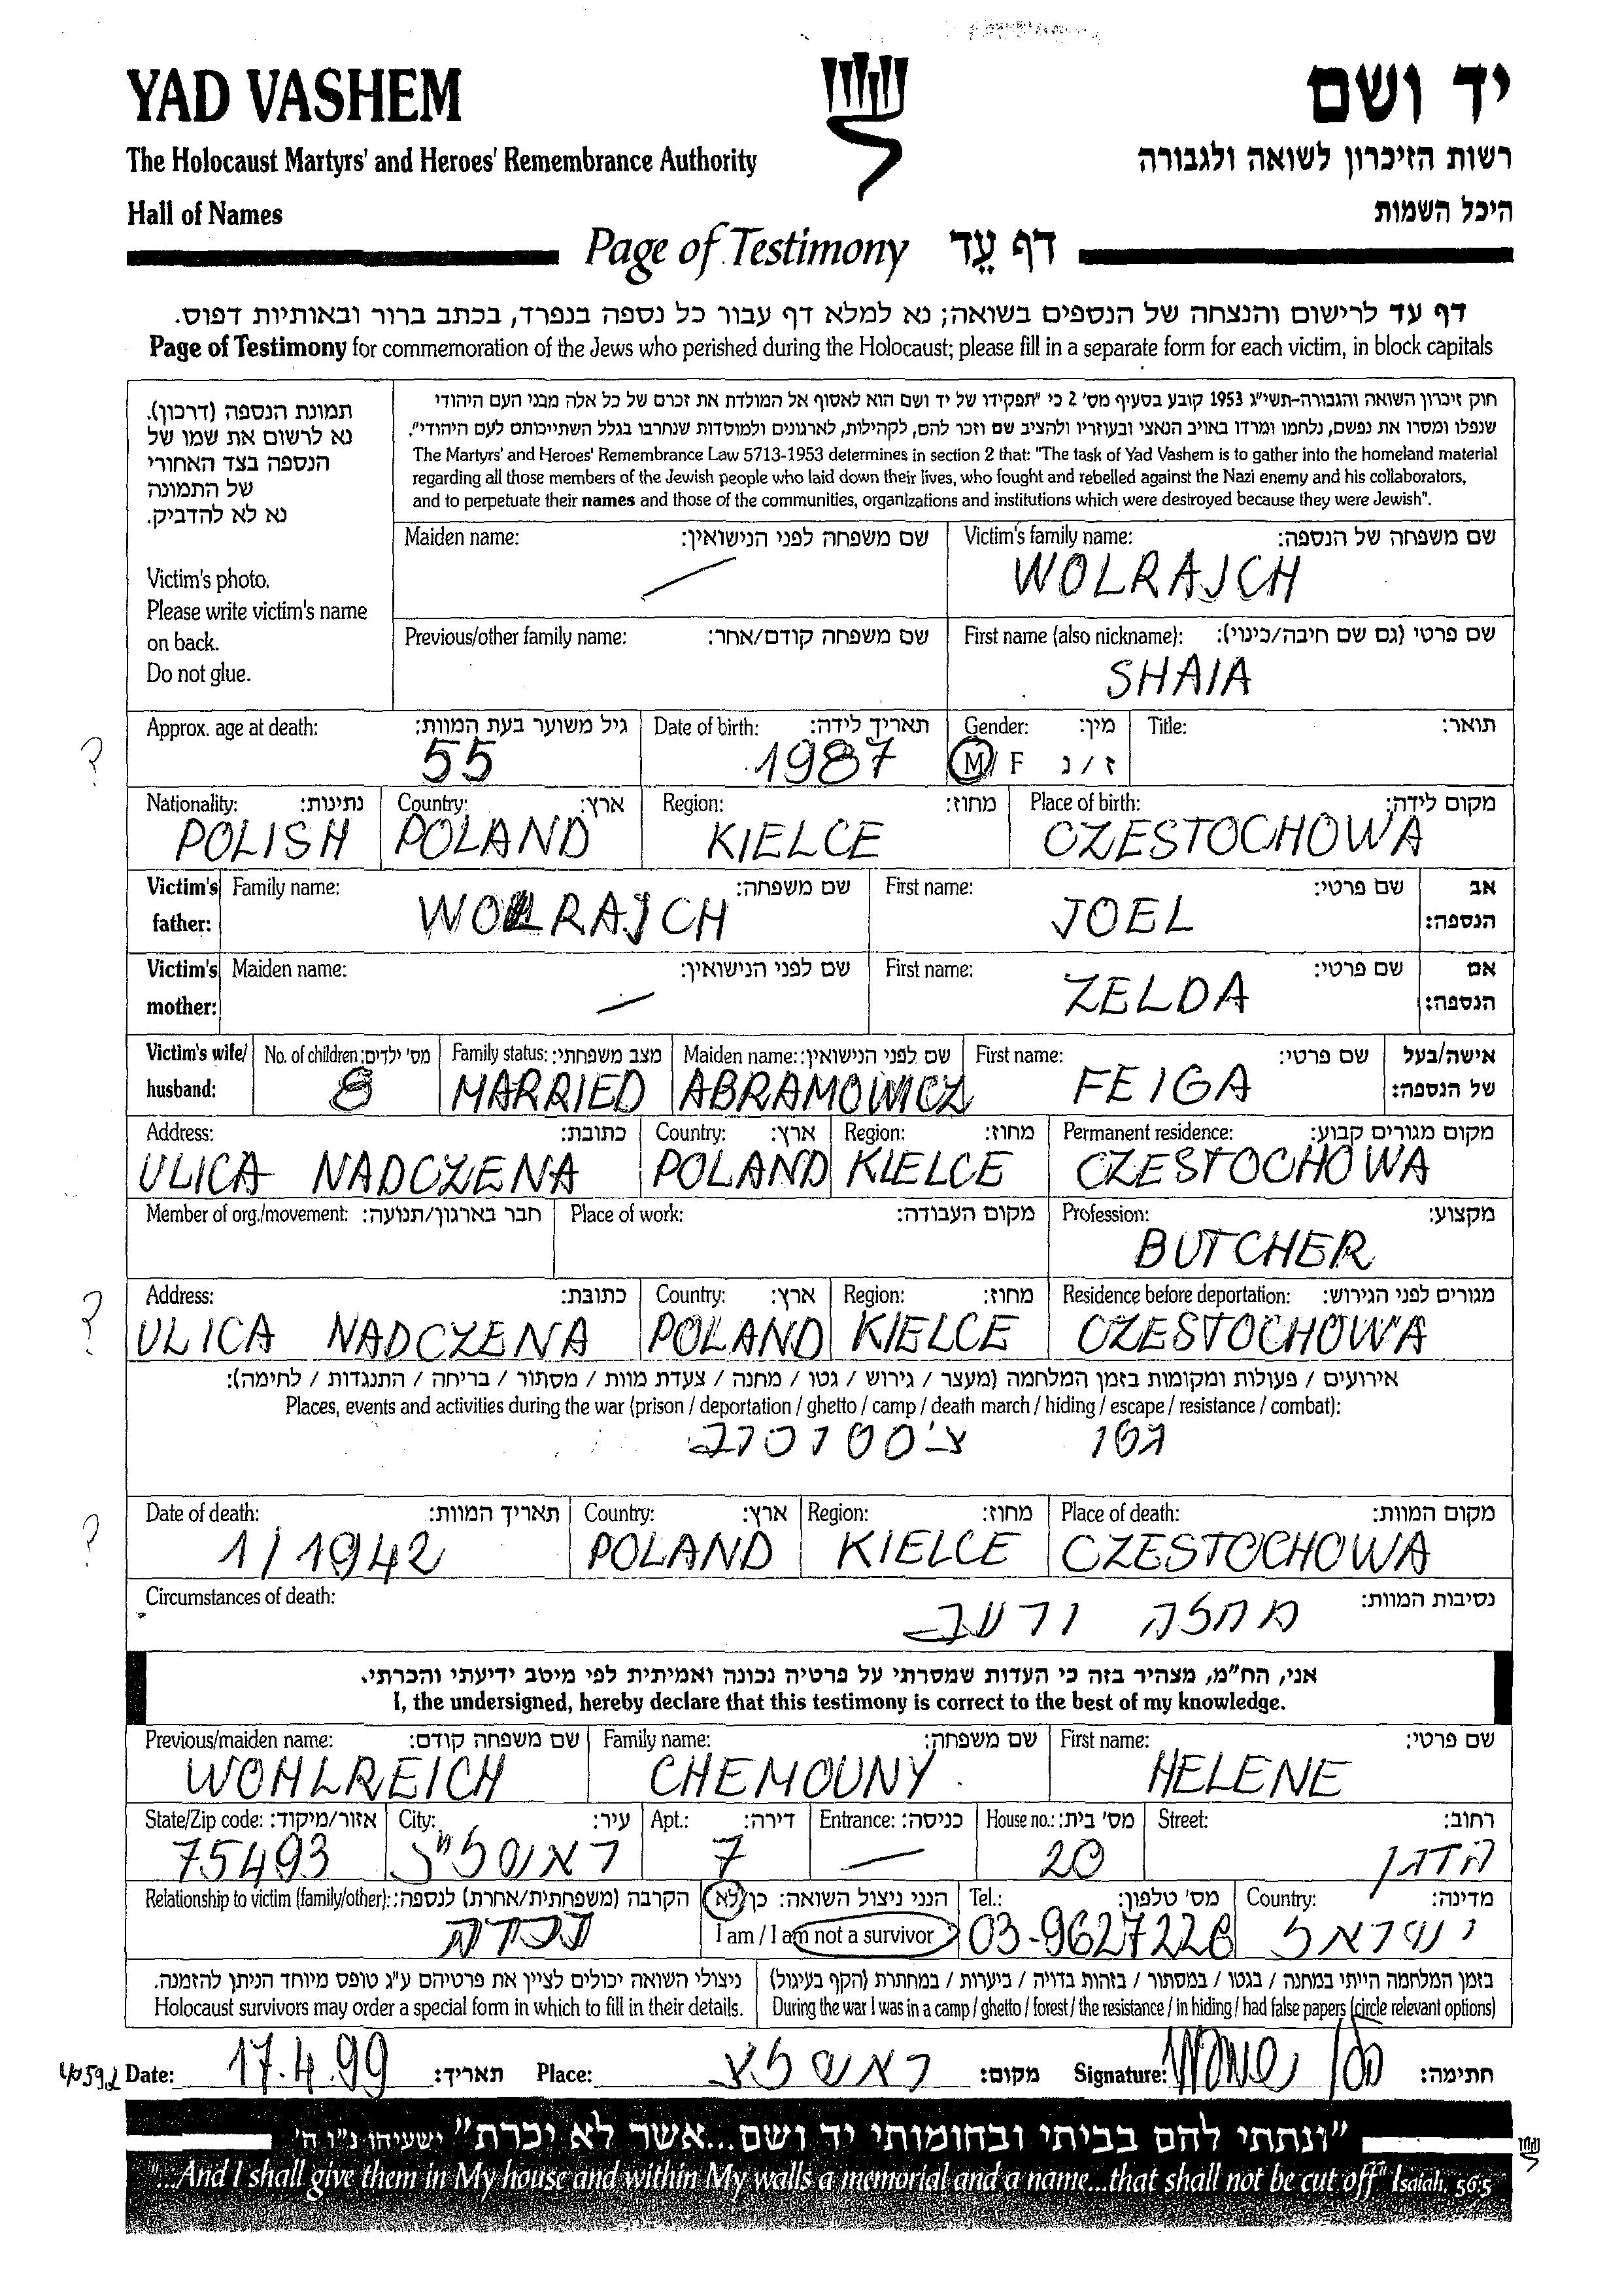 YAD VASHEM
יד ושם
The Holocaust Martyrs' and Heroes' Remembrance Authority
רשות הזיכרון לשואה ולגבורה
Hall of Names
היכל השמות
Page of Testimony דף עֵד
דף עד לרישום והנצחה של הנספים בשואה; נא למלא דף עבור כל נספה בנפרד, בכתב ברור ובאותיות דפוס.
Page of Testimony for commemoration of the Jews who perished during the Holocaust; please fill in a separate form for each victim, in block capitals
תמונת הנספה (דרכון).
נא לרשום את שמו של
הנספה בצד האחורי
של התמונה
נא לא להדביק.
Victim's photo.
Please write victim's name
on back.
Do not glue.
חוק זיכרון השואה והגבורה-תשי"ג 1953 קובע בסעיף מס' 2 כי "תפקידו של יד ושם הוא לאסוף אל המולדת את זכרם של כל אלה מבני העם היהודי
שנפלו ומסרו את נפשם, נלחמו ומרדו באויב הנאצי ובעוזריו ולהציב שם וזכר להם, לקהילות, לארגונים ולמוסדות שנחרבו בגלל השתייכותם לעם היהודי".
The Martyrs' and Heroes' Remembrance Law 5713-1953 determines in section 2 that: "The task of Yad Vashem is to gather into the homeland material
regarding all those members of the Jewish people who laid down their lives, who fought and rebelled against the Nazi enemy and his collaborators,
and to perpetuate their names and those of the communities, organizations and institutions which were destroyed because they were Jewish".
Maiden name: שם משפחה לפני הנישואין: Victim's family name: שם משפחה של הנספה:
WOLRAJCH
Previous/other family name: שם משפחה קודם/אחר: First name (also nickname): שם פרטי (גם שם חיבה/כינוי):
SHAIA
Approx. age at death: גיל משוער בעת המוות: Date of birth: תאריך לידה: Gender: מין: Title: תואר:
? 55 1987 M/ F ז / נ
Nationality: נתינות: Country: ארץ: Region: מחוז: Place of birth: מקום לידה:
POLISH POLAND KIELCE CZESTOCHOWA
Victim's father: Family name: שם משפחה: First name: שם פרטי: אב הנספה:
WOLRAJCH JOEL
Victim's mother: Maiden name: שם לפני הנישואין: First name: שם פרטי: אם הנספה:
ZELDA
Victim's wife/ husband: No. of children: מס' ילדים: Family status: מצב משפחתי: Maiden name: שם לפני הנישואין: First name: שם פרטי: אישה/בעל של הנספה:
8 MARRIED ABRAMOWICZ FEIGA
Address: כתובת: Country: ארץ: Region: מחוז: Permanent residence: מקום מגורים קבוע:
ULICA NADCZENA POLAND KIELCE CZESTOCHOWA
Member of org./movement: חבר בארגון/תנועה: Place of work: מקום העבודה: Profession: מקצוע:
BUTCHER
Address: כתובת: Country: ארץ: Region: מחוז: Residence before deportation: מגורים לפני הגירוש:
? ULICA NADCZENA POLAND KIELCE CZESTOCHOWA
אירועים / פעולות ומקומות בזמן המלחמה (מעצר / גירוש / גטו / מחנה / צעדת מוות / מסתור / בריחה / התנגדות / לחימה):
Places, events and activities during the war (prison / deportation / ghetto / camp / death march / hiding / escape / resistance / combat):
גטו
Date of death: תאריך המוות: Country: ארץ: Region: מחוז: Place of death: מקום המוות:
? 1/1942 POLAND KIELCE CZESTOCHOWA
Circumstances of death: נסיבות המוות:
מחלה ורעב
אני, הח"מ, מצהיר בזה כי העדות שמסרתי על פרטיה נכונה ואמיתית לפי מיטב ידיעתי והכרתי.
I, the undersigned, hereby declare that this testimony is correct to the best of my knowledge.
Previous/maiden name: שם משפחה קודם: Family name: שם משפחה: First name: שם פרטי:
WOHLREICH CHEMOUNY HELENE
State/Zip code: אזור/מיקוד: City: עיר: Apt.: דירה: Entrance: כניסה: House no.: מס' בית: Street: רחוב:
75493 ראשל"צ 7 20 הדגן
Relationship to victim (family/other): הקרבה (משפחתית/אחרת) לנספה: הנני ניצול השואה: כן/לא Tel.: מס' טלפון: Country: מדינה:
נכדה I am / I am not a survivor 03-9627228 ישראל
ניצולי השואה יכולים לציין את פרטיהם ע"ג טופס מיוחד הניתן להזמנה. בזמן המלחמה הייתי במחנה / בגטו / במסתור / בזהות בדויה / ביערות / במחתרת (הקף בעיגול)
Holocaust survivors may order a special form in which to fill in their details. During the war I was in a camp / ghetto / forest / the resistance / in hiding / had false papers (circle relevant options)
Date: 17.4.99 תאריך: Place: ראשלצ מקום: Signature: חתימה:
"ונתתי להם בביתי ובחומותי יד ושם...אשר לא יכרת" ישעיהו נ"ו ה'
"...And I shall give them in My house and within My walls a memorial and a name...that shall not be cut off" Isaiah, 56:5